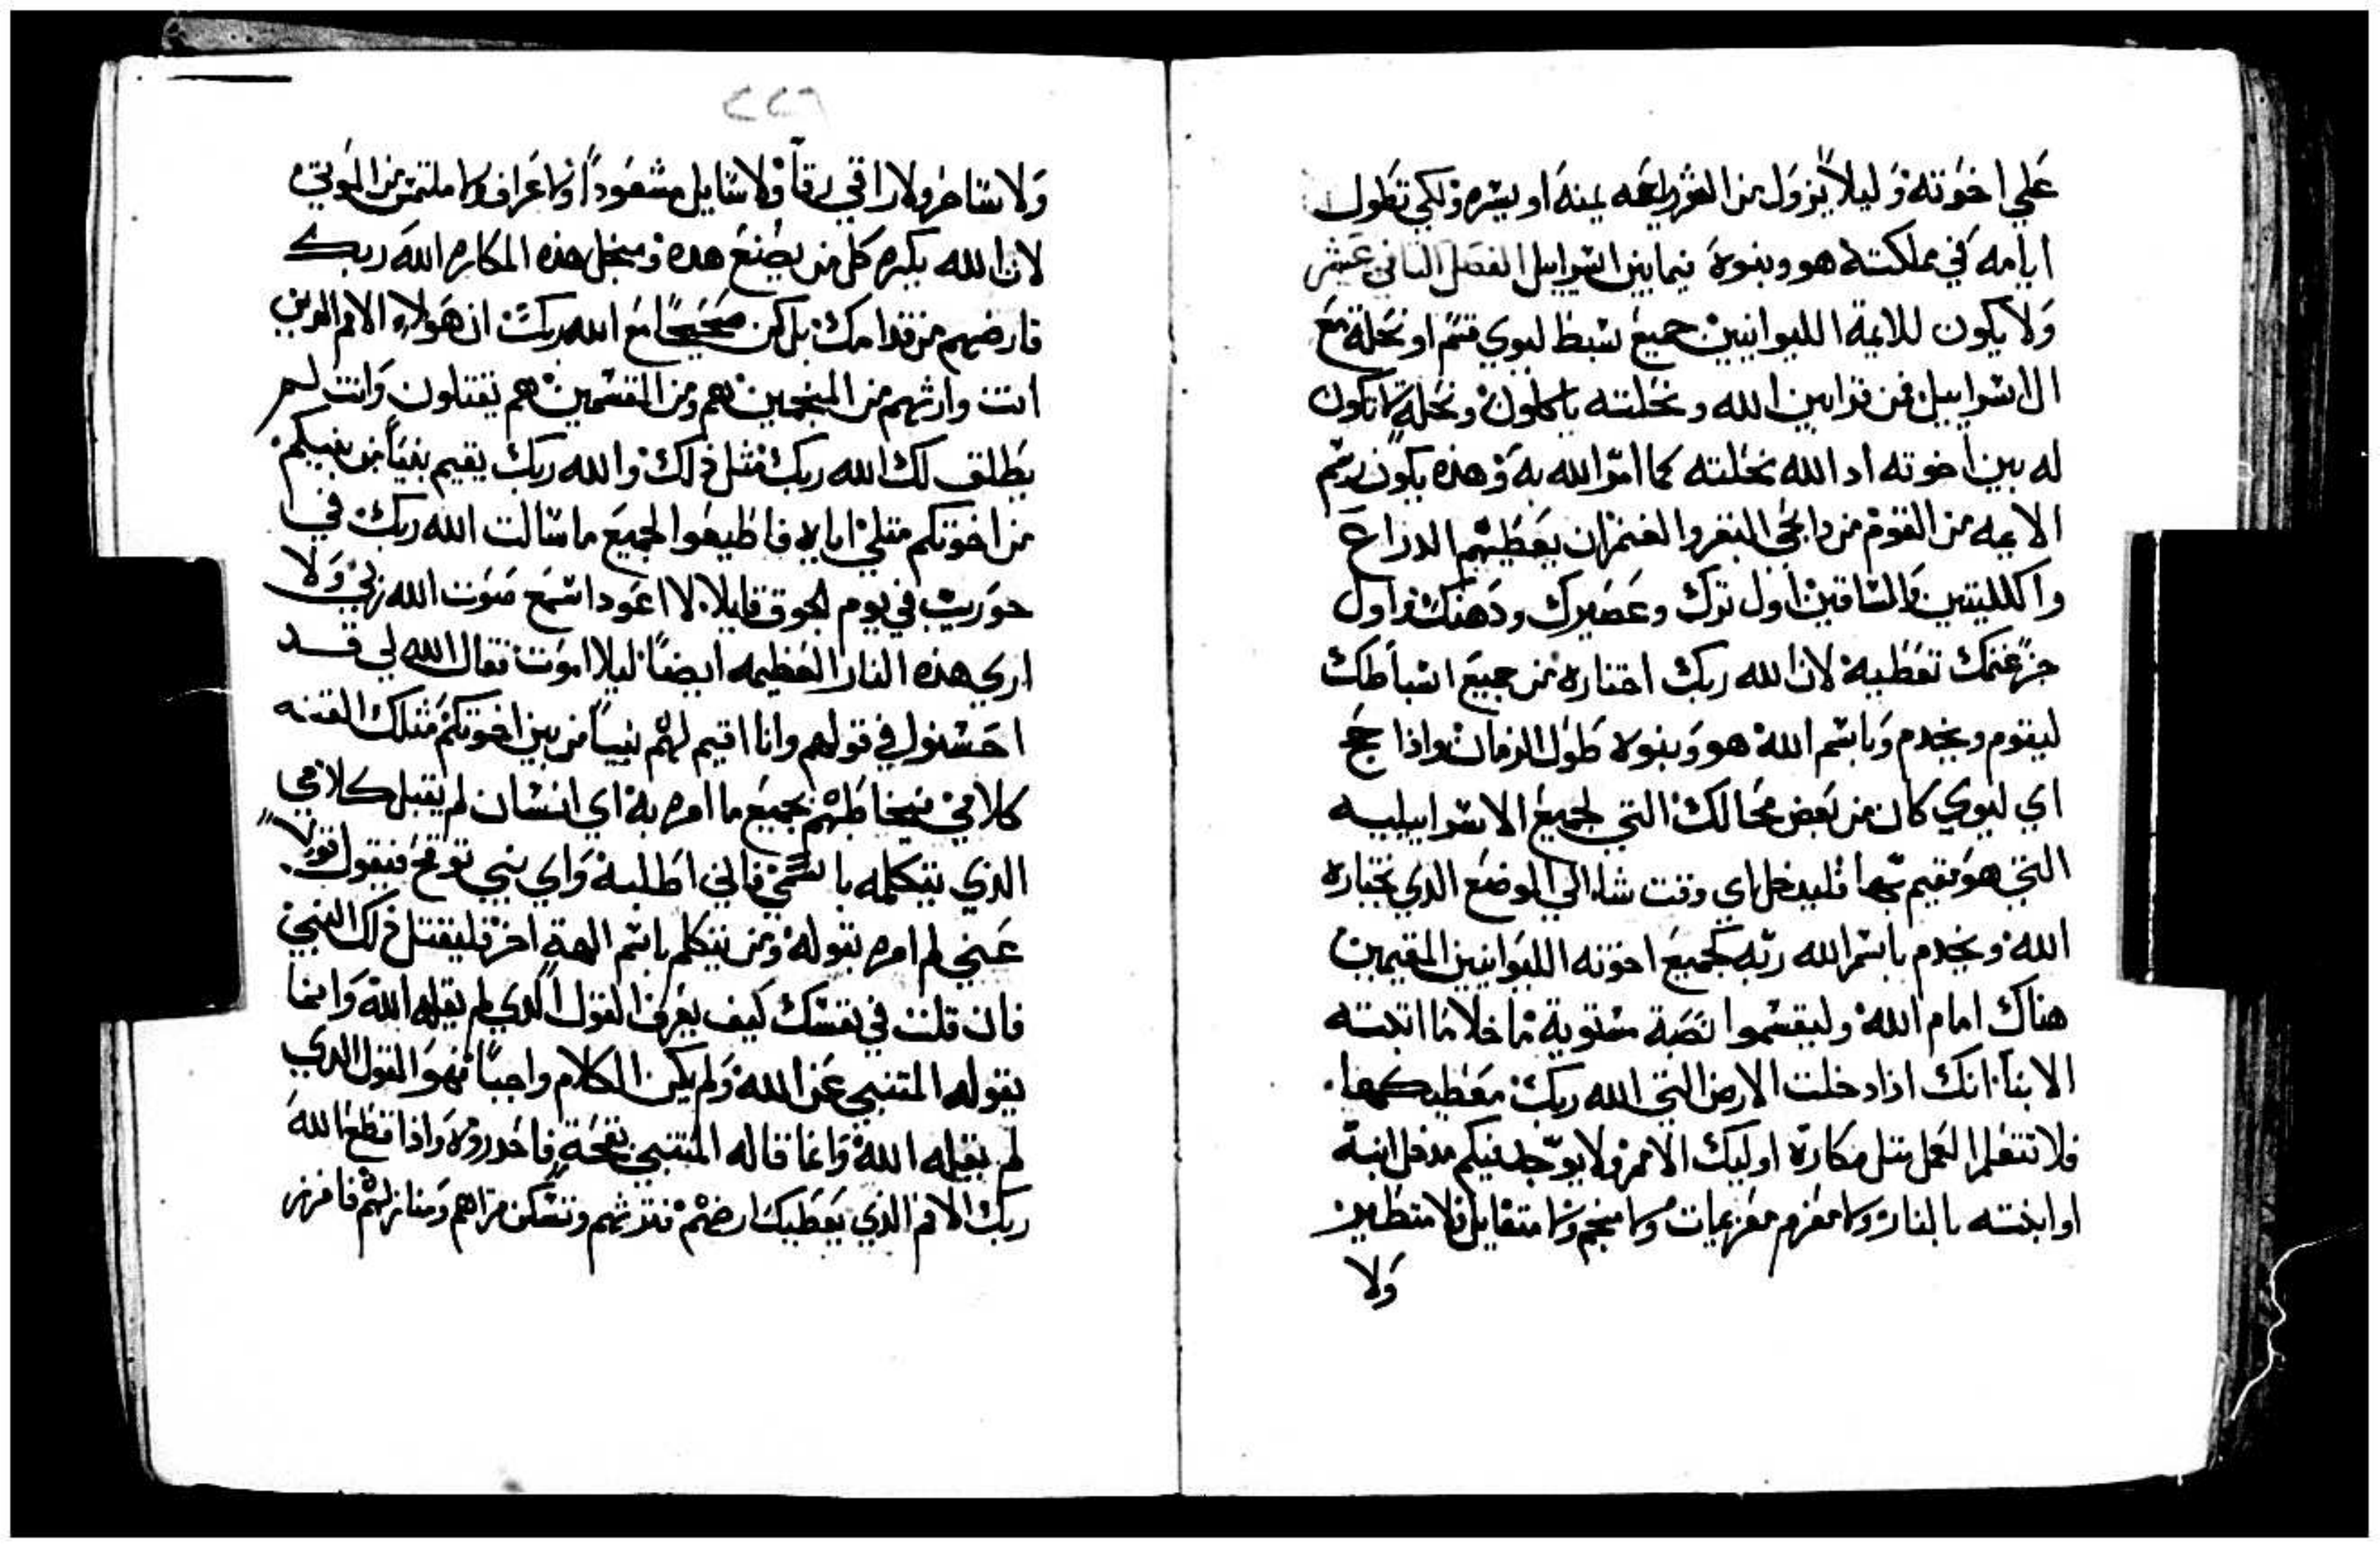 علي اخوته وليلا يزول من الفريضه يمنه او يسره ولكي تطول
ايامه في مملكته هو وبنوه فيما بين اسراييل الفصل الثاني عشر
ولا يكون للايمة الليوانيين جميع سبط ليوي قسم او نحلة مع
ال اسراييل فمن قرابين الله ونحلته ياكلون ونحلة لا تكون
له بين اخوته اد الله نحلته كما امر الله به وهذه يكون رسم
الايمه من القوم من دابحي البقر والغنم ان يعطيهم الدراع
واكلليتين والساقين اول ترك وعصيرك ودهنك واول
جز غنمك تعطيه لان الله ربك اختاره من جميع اسباطك
ليقوم ويخدم وباسم الله هو وبنوه طول الزمان واذا حج
اي ليوي كان من بعض محالك التي لجميع الاسراييليه
التي هو مقيم بها فليدخل اي وقت شاء الي الموضع الدي يختاره
الله ويخدم باسم الله ربه كجميع اخوته الليوانيين المقيمين
هناك امام الله وليقسموا نصبة مستوية ما خلا ما اتبته
الابنا انك اذا دخلت الارض التي الله ربك معطيكها
فلا تتعلم العمل متل مكاره اوليك الامم ولا يوجد فيكم مدخل ابنه
او ابنته بالنار ولا معزم معزيمات ولا منجم ولا متفايل ولا متطير
ولا
٢٢٦
ولا ساحر ولا راقي رقا ولا سايل مشعودا ولا عراف ولا ملتمس من الموتي
لان الله يكره كل من يصنع هده ومنجل هذه المكاره الله ربك
قارضهم من قدامك بل كن صحيحا مع الله ربك ان هولاء الامم الدين
انت وارثهم من المنجمين هم ومن المقسمين هم يقتلون وانت لم
يطلق لك الله ربك مثل ذلك والله ربك يقيم نبيا من بنيكم
من اخوتكم متلي اياه فاطيعوا لجميع ما سالت الله ربك في
حوريب في يوم الجوق قايلا لا اعود اسمع صوت الله ربي ولا
اري هذه النار العظيمه ايضا ليلا اموت فقال الله لي قد
احسنوا في قولهم وانا اقيم لهم نبيا من بين اخوتكم مثلك القنه
كلامي فيخاطبهم بجميع ما امره به اي انسان لم يقبل كلامي
الذي يتكلمه باسمي فاني اطلبه واي نبي توقح فيقول قولا
عني لم امره بقوله ومن يتكلم باسم الهة اخر فليقتل ذلك النبي
فان قلت في نفسك كيف يعرف القول الدي لم يقله الله وانما
يقوله المتنبي عن الله ولم يكن الكلام واجبا فهو القول الدي
لم يقله الله وانما قاله المتنبي بقحة فاحدروه واذا قطع الله
ربك الامم الذي يعطيك ارضهم فترثهم وتسكن قراهم ومنازلهم فافرز